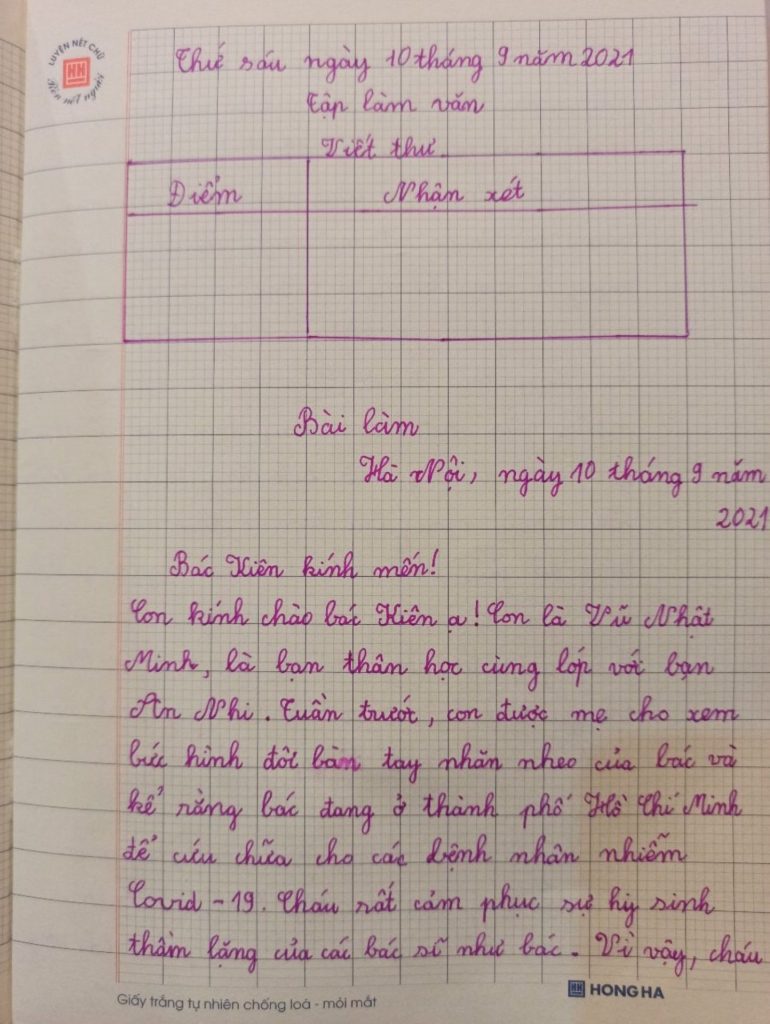 LUYỆN NẾT CHỮ
HH
Rèn nết người
Thứ sáu ngày 10 tháng 9 năm 2021
Tập làm văn
Viết thư
Điểm
Nhận xét
Bài làm
Hà Nội, ngày 10 tháng 9 năm
2021
Bác Kiên kính mến!
Con kính chào bác Kiên ạ! Con là Vũ Nhật
Minh, là bạn thân học cùng lớp với bạn
An Nhi. Tuần trước, con được mẹ cho xem
bức hình đôi bàn tay nhăn nheo của bác và
kể rằng bác đang ở thành phố Hồ Chí Minh
để cứu chữa cho các bệnh nhân nhiễm
Covid-19. Cháu rất cảm phục sự hy sinh
thầm lặng của các bác sĩ như bác. Vì vậy, cháu
Giấy trắng tự nhiên chống loá - mỏi mắt
HH HONG HA